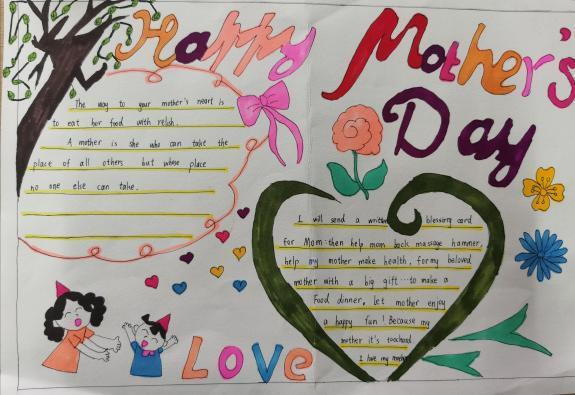 Happy Mother's
Day
The way to your mother's heart is
to eat her food with relish.
A mother is she who can take the
place of all others but whose place
no one else can take.
I will send a written blessing card
for Mom: then help mom back massage hammer,
help my mother make health, for my beloved
mother with a big gift ... to make a
Food dinner, let mother enjoy
a happy fun! Because my
mother it's
I love my mother
LOVE